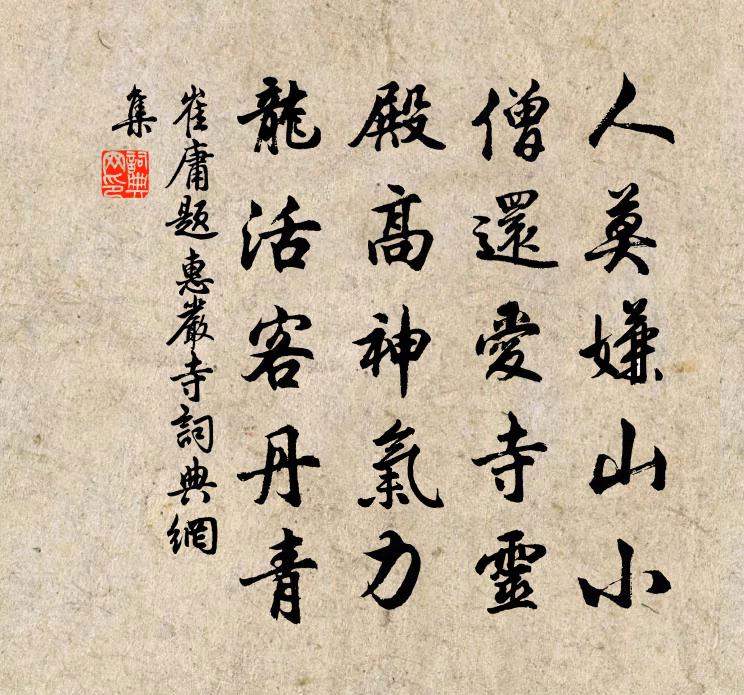 人莫嫌山小
僧還愛寺靈
殿高神氣力
龍活客丹青
崔庸題惠嚴寺詞典網
集
詞典
网印